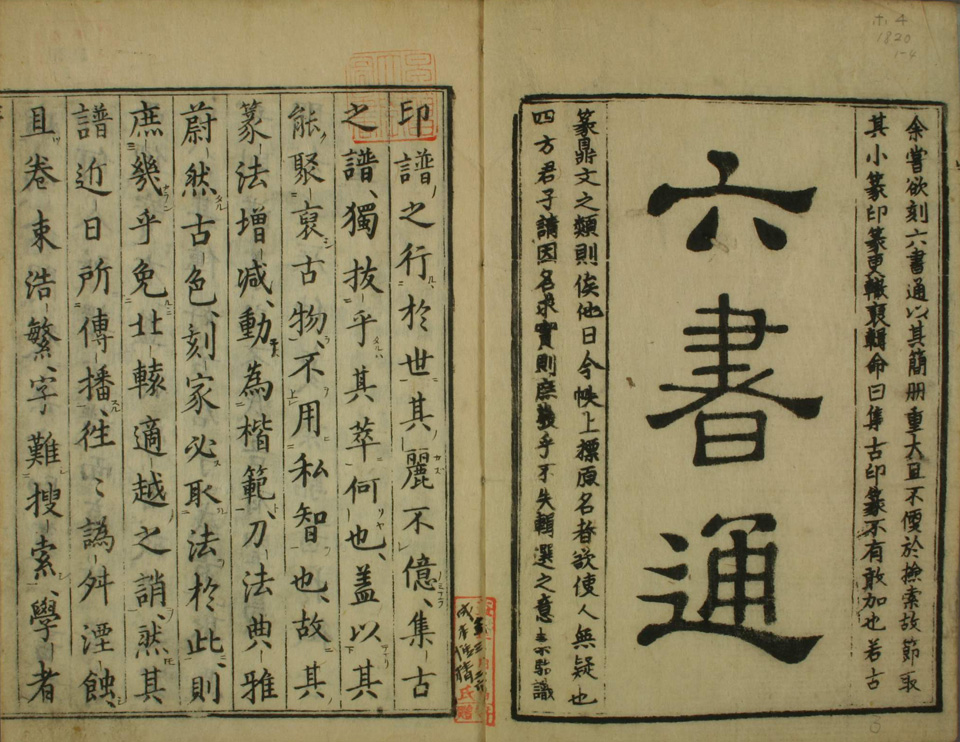 余嘗欲刻六書通以其簡册重大且不便於撿索故節取
其小篆印篆更轍裒輯命曰集古印篆不有敢加也若古
六書通
篆鼎文之類則俟他日今帙上標原名者欲使人無疑也
四方君子請因名求實則庶幾乎不失輯選之意
印譜之行於世其麗不億集古
之譜獨拔乎其萃何也蓋以其
能聚裒古物不用私智也故其
篆法增減動為楷範刀法典雅
蔚然古色刻家必取法於此則
庶幾乎免北轅適越之誚然其
譜近日所傳播往〻譌舛湮蝕
且卷束浩繁字難搜索學者
ホ4
1820
1-4